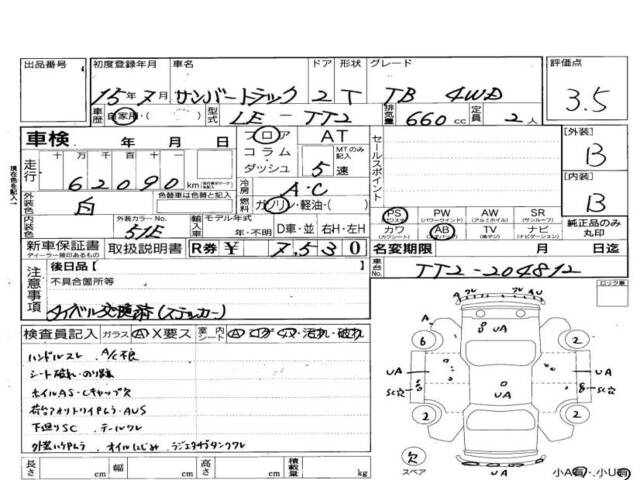 出品番号 初度登録年月 車名 ドア 形状 グレード 評価点
15年7月 サンバートラック 2 T TB 4WD 3.5
車歴 自家用・( ) 型式 LE-TT2 排気量 660cc 定員 2人
車検 年 月 日 フロア AT セールスポイント [外装]
コラム・ダッシュ MTのみ記入 5速 B
走行 十万 万 千 百 十 一
62090 km 冷房 A・C [内装]
外装色 白 色替車は色替と記入 燃料 ガソリン・軽油・( ) B
内装色 外装カラーNo. 51E 輸入車 モデル年式 年・不明 D車・並 右H・左H
PS PW AW SR 純正品のみ丸印
(パワステ) (パワーウインド) (アルミホイル) (サンルーフ)
カワ AB TV ナビ
(カワシート) (エアバッグ) (純テレ) (ナビゲーション)
新車保証書 取扱説明書 R券 ¥ 7,530 名変期限 月 日迄
ディーラー印のあるもの
注意事項 後日品【 】 車台No. TT2-204812
不具合箇所等 ロック車
タイベル交換済(ステッカー)
検査員記入 ガラス A・X要ス 室内 シート
ハンドルスレ A/C不良
シート破れ・
ホイルAS・Cキャップ欠
下廻りSC テールワレ
オイルにじみ
A フレ フレ AU
UA
A
6 2
UA UA UA
SC穴 SC穴
2 2
UA
欠
スペア 小A有・小U有
長さ cm 幅 cm 高さ cm 積載量 kg
現在色を記入